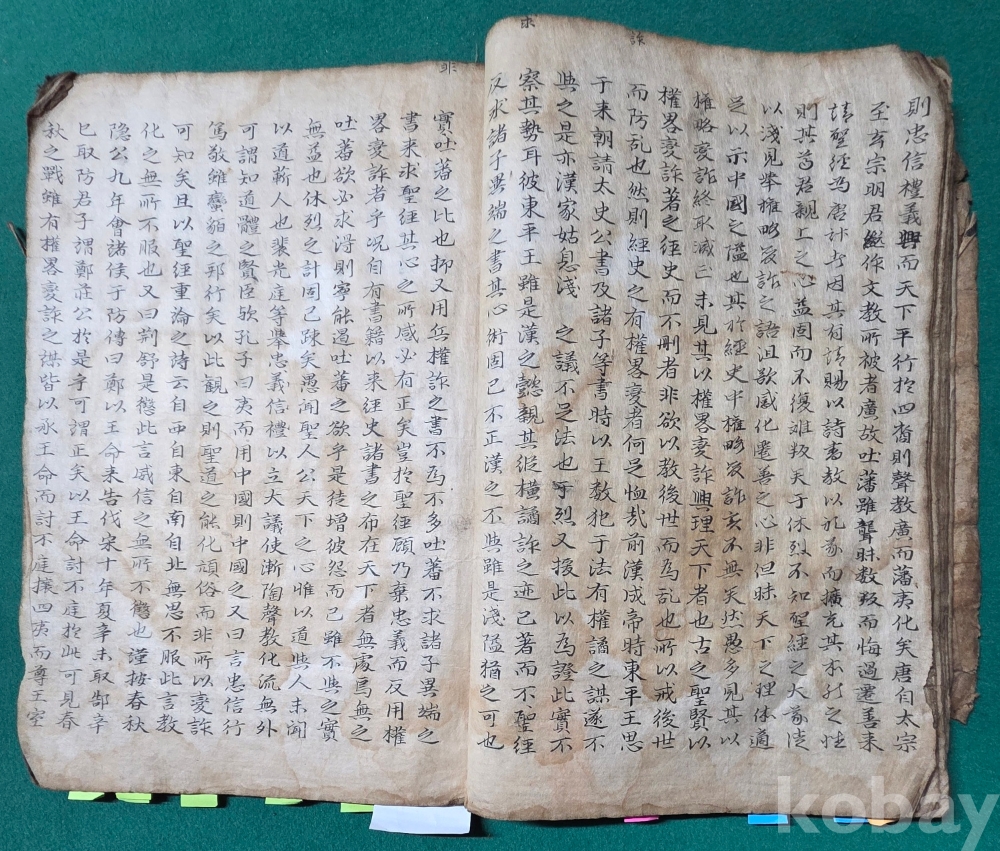 求
詐
則忠信禮義興而天下平行於四裔則聲教廣而藩夷化矣唐自太宗
至玄宗明君繼作文教所被者廣故吐藩雖聾昧数叛而悔過遷善来
請聖經爲唐計者因其有請賜以詩書教以彛而擴充其本然之性
則其尊君親上之心益固而不復雖叛天于休烈不知聖經之大彛徒
以淺見挙權略変詐之語沮欲感化遷善之心非但昧天下之理体適
足以示中國之隘也其於經史中權略変詐亥不無矣然愚多見其以
權略変詐終取滅亡未見其以權畧変詐興理天下者也古之聖賢以
權畧変詐著之經史而不刪者非欲以教後世而爲乱也所以戒後世
而防乱也然則經史之有權畧変者何足恤哉前漢成帝時東平王思
于来朝請太史公書及諸子等書時以王教犯于法有權譎之謀遂不
與之是亦漢家姑息淺 之議不足法也于烈又援此以爲證此實不
察其勢耳彼東平王雖是漢之懿親其縱橫譎詐之迹已著而不聖經
反求諸子異端之書其心術固已不正漢之不與雖是淺隘猶之可也
非
實吐蕃之比也抑又用兵權詐之書不爲不多吐蕃不求諸子異端之
書来求聖經其心之所感必有正矣豈於聖經顧乃棄忠義而反用權
畧変詐者乎况自有書籍以来経史諸書之布在天下者無處焉無之
吐蕃欲必求淂則寧能遏吐蕃之欲乎是徒增彼怨而已雖不與之實
無益也休烈之計固已踈矣愚聞聖人公天下之心唯以道與人未聞
以道蘄人也裴光庭等舉忠義信禮以立大議使漸陶聲教化流無外
可謂知道體之賢臣欤孔子曰夷而用中國則中國之又曰言忠信行
篤敬雖蠻貊之邦行矣以此觀之則聖道之能化頑俗而非所以変詐
可知矣且以聖經重淪之詩云自西自東自南自北無思不服此言教
化之無所不服也又曰荆舒是懲此言威信之無所不懲也謹按春秋
隐公九年會諸侯于防傳曰鄭以王命来告伐宋十年夏辛未取郜辛
巳取防君子謂鄭莊公於是乎可謂正矣以王命討不庭於此可見春
秋之戰雖有權畧変詐之謀皆以承王命而討不庭攘四夷而尊王室
kobay